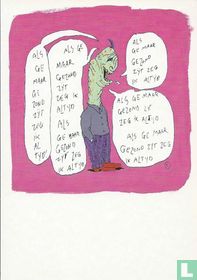 ALS
GE
MAAR
GE
ZOND
ZYT
ZEG
IK
AL
TYD
ALS GE
MAAR
GEZOND
ZYT
ZEG IK
ALTYD
ALS
GE MAAR
GEZOND
ZYT ZEG
IK ALTYD
ALS
GE MAAR
GEZOND
ZYT ZEG
IK ALTYD
ALS GE MAAR
GEZOND ZYT
ZEG IK ALTYD
ALS GE MAAR
GEZOND ZYT ZEG
IK ALTYD
catawiki